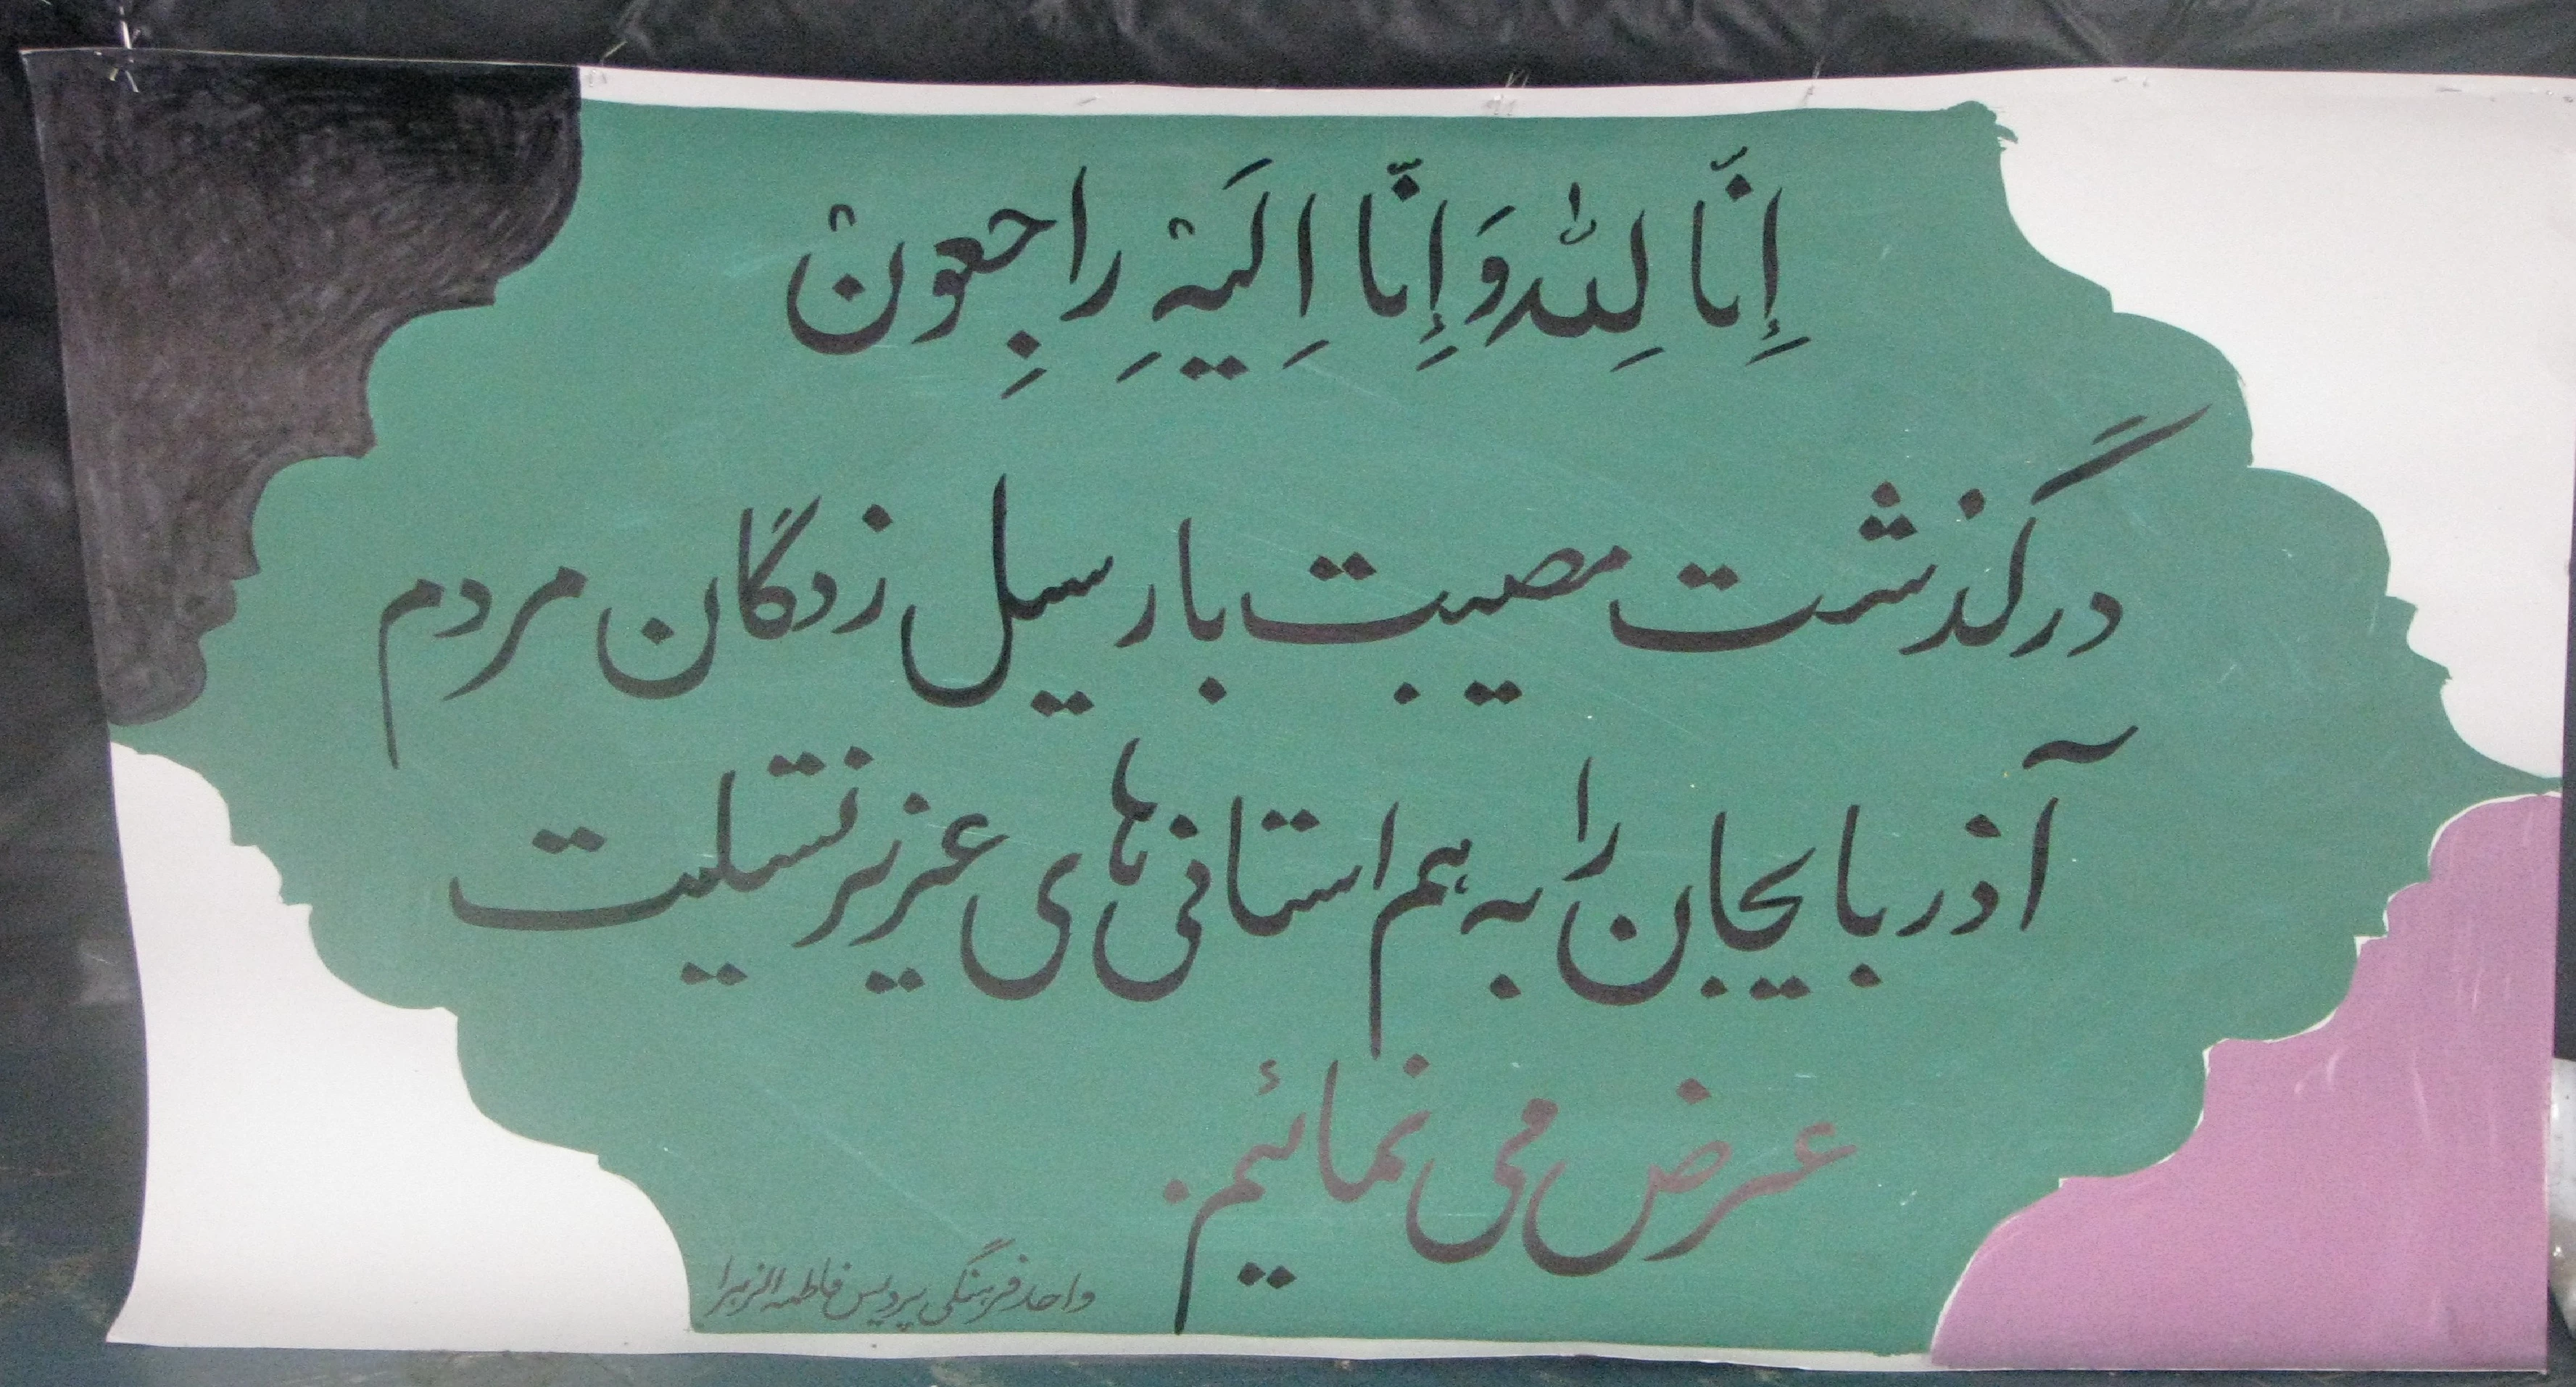 إِنّا لِلّٰه وَ إِنّا اِلَیْهِ راجِعونْ
درگذشت مصیبت بار سیل زدگان مردم
آذربایجان را به هم استانی های عزیز تسلیت
عرض می نمائیم.
واحد فرهنگی پردیس فاطمه الزهرا